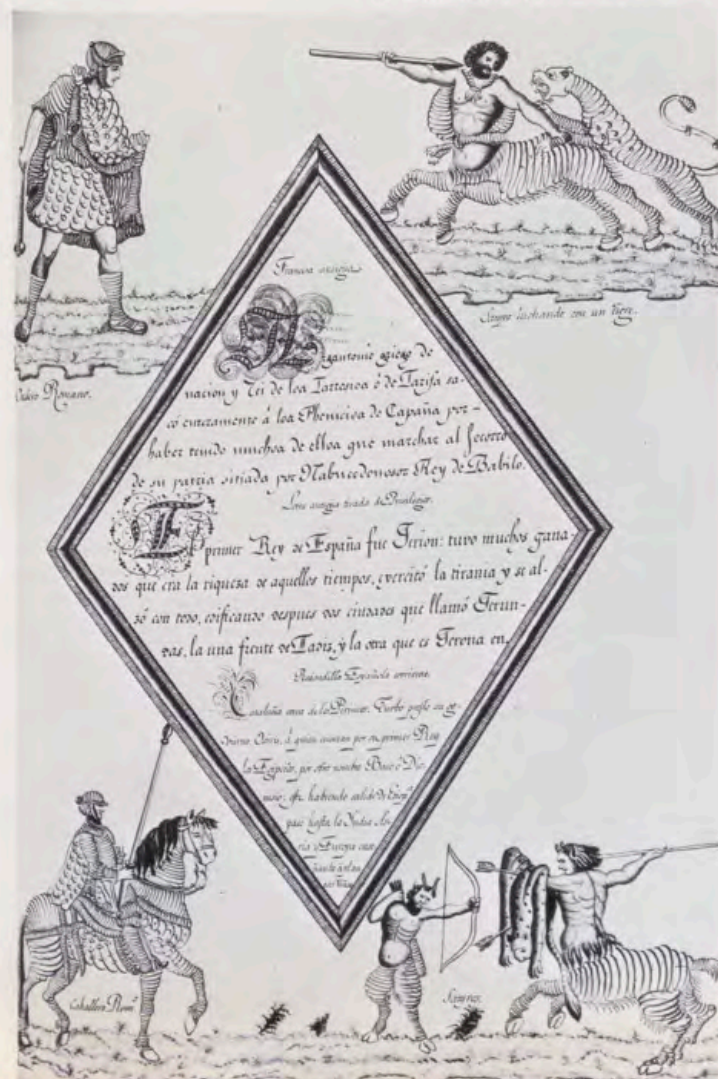 Francesa antigua
Argantonio griego de
nacion y Rei de los Tartesios ó de Tarifa sa-
có enteramente á los Phenicios de España por-
haber tenido muchos de ellos que marchar al socorro
de su patria sitiada por Nabucodonosor Rey de Babilo.
Letra antigua tirada de Privilegios.
El primer Rey de España fue Gerion: tuvo muchos gana-
dos que era la riqueza de aquellos tiempos, exercitó la tirania y se al-
zó con todo, edificando despues dos ciudades que llamó Gerun-
das, la una frente de Cadiz, y la otra que es Gerona en
Redondilla Española corriente.
Cataluña cerca de los Pirineos. Turbo presto su go-
vierno Osiris, á quien cuentan por su primer Rey
los Egipcios, por otro nombre Baco ó Dio-
nisio: habiendo salido de
paso hasta la India
y Europa
Satyro luchando con un tigre.
Romano.
Caballero Rom.º
Satyros.